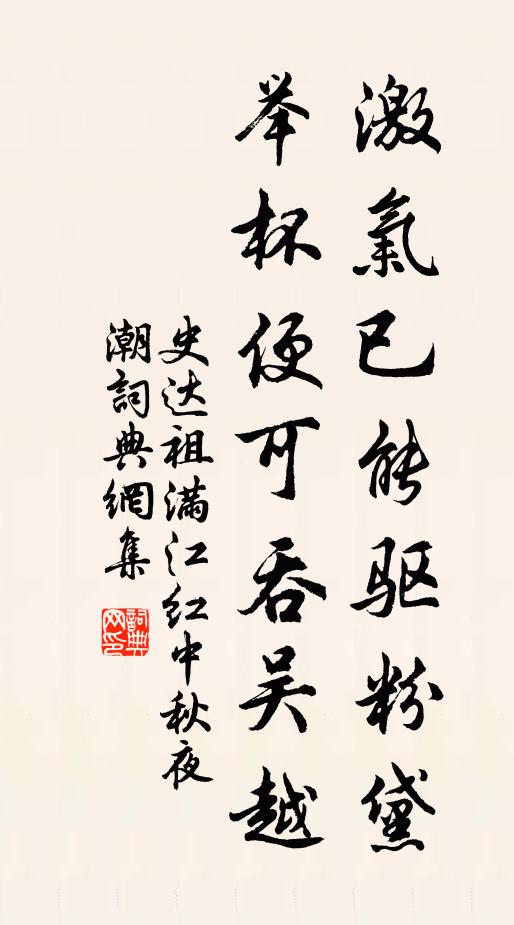 激氣已能驱粉黛
举杯便可吞吴越
史达祖满江红中秋夜
潮詞典網集
詞典网印